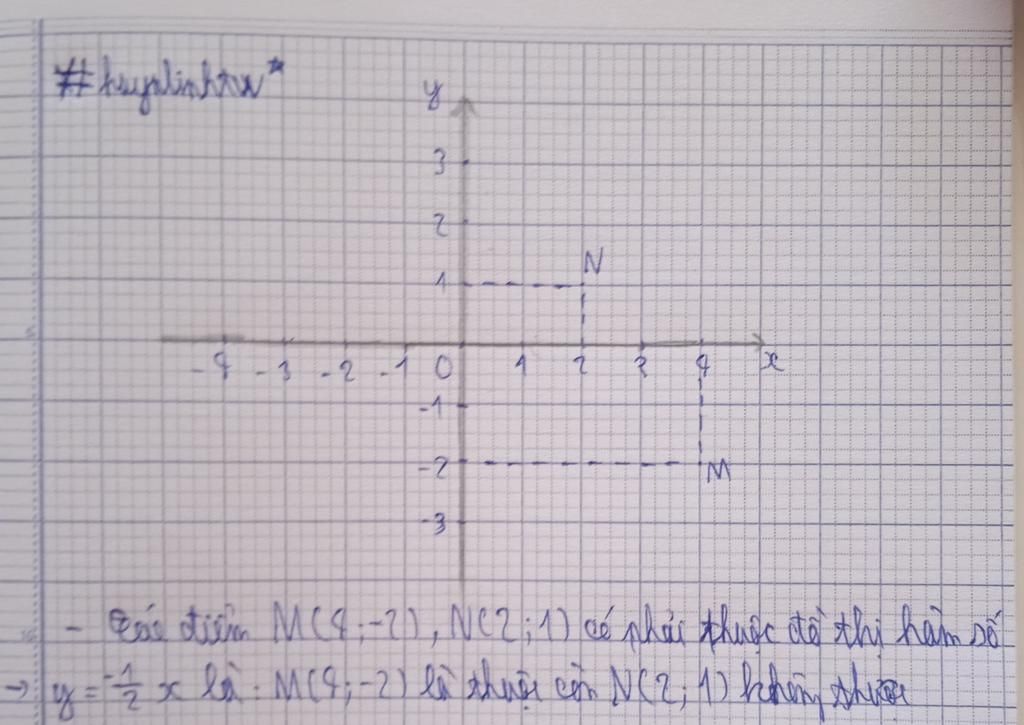 y
3
2
N
1
-4 -3 -2 -1 0 1 2 3 4 x
-1
-2 M
-3
- Các điểm M(4;-2), N(2;1) có phải thuộc đồ thị hàm số
→ y = -1/2 x là: M(4;-2) là thuộc còn N(2;1) không thuộc